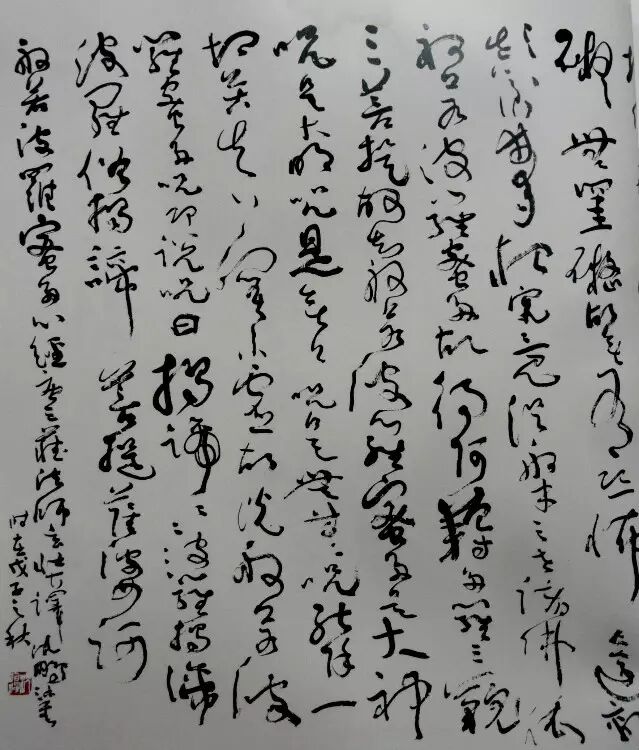 礙無罣礙故無有恐怖遠離
顛倒夢想究竟涅槃三世諸佛依
般若波羅蜜多故得阿耨多羅三藐
三菩提故知般若波羅蜜多是大神
呪是大明呪是無上呪是無等等呪能除一
切苦真實不虛故說般若波
羅蜜多呪即說呪曰揭諦揭諦波羅揭諦
波羅僧揭諦菩提薩婆訶
般若波羅蜜多心經唐三藏法師玄奘譯
之秋